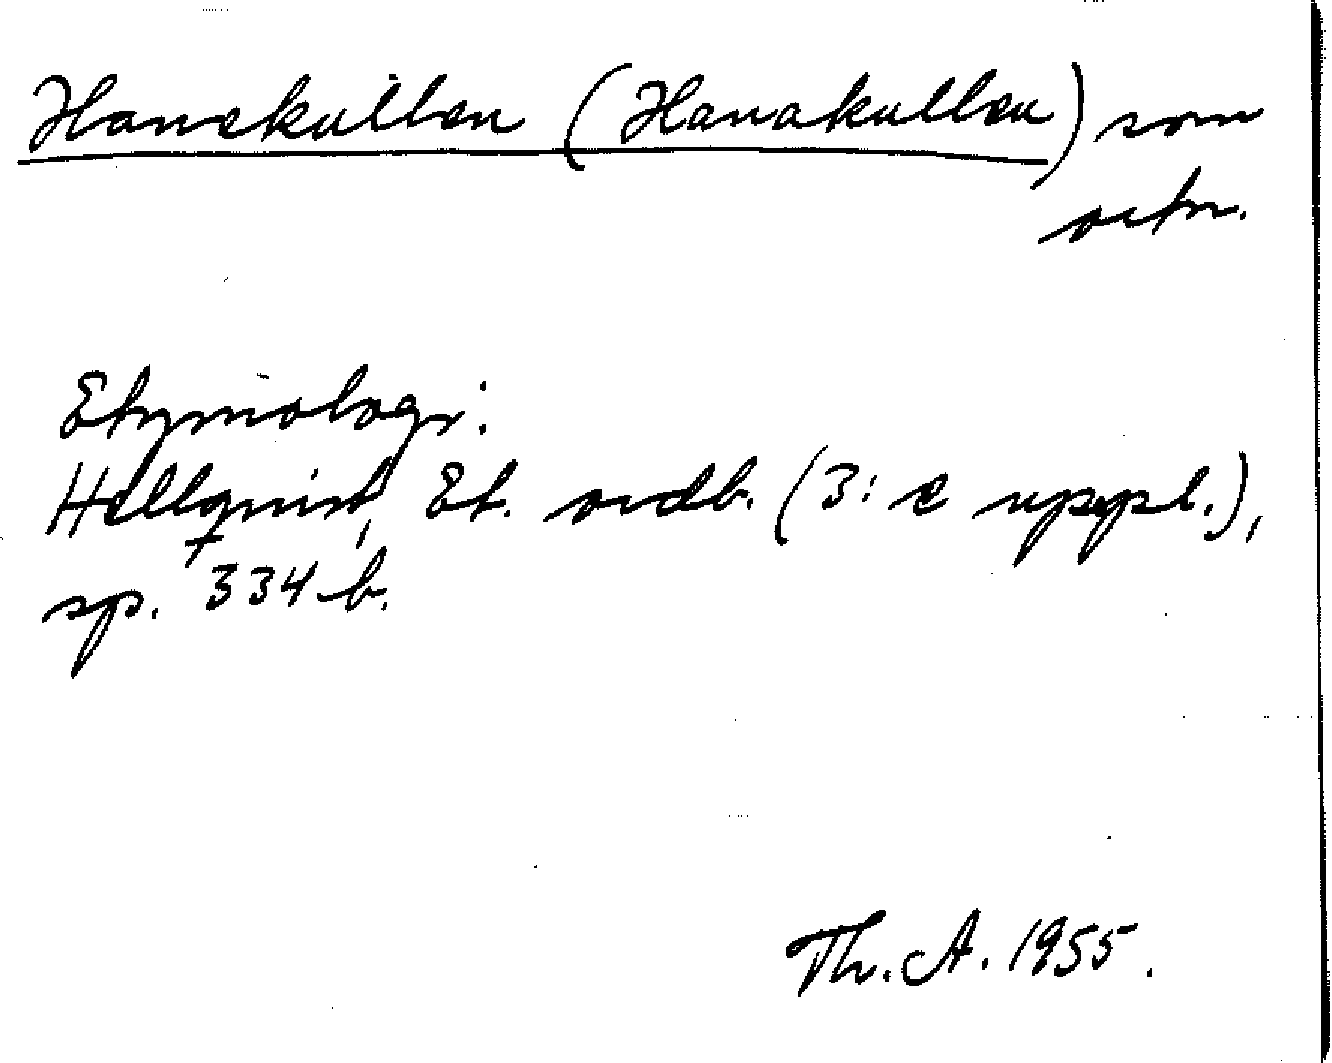 Hanekullen (Hanakullen) som
ortn.
Etymologi:
Hellquist, Et. ordb. (3:e uppl.),
sp. 334 b.
Th. A. 1955.